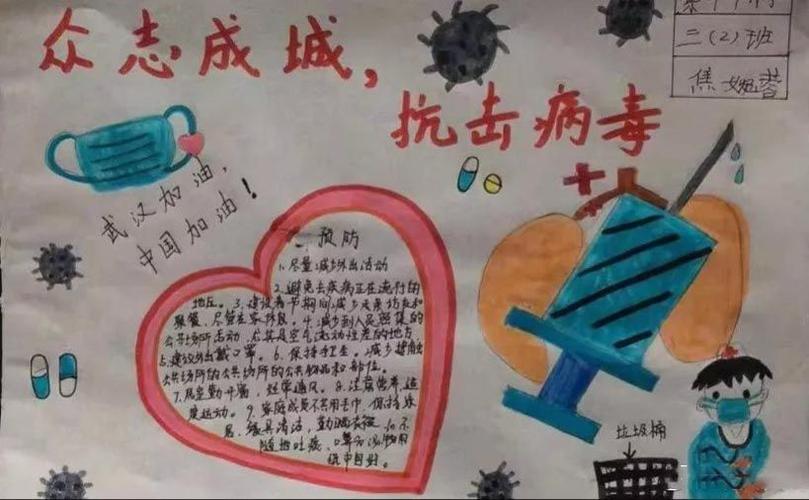 众志成城，
抗击病毒
三（2）班
焦婉蓉
武汉加油，
中国加油！
一、预防
1.尽量减少外出活动
2.避免去疾病正在流行的
地区。3.建议春节期间减少走亲访友和
聚餐，尽量在家休息。4.减少到人员密集的
公共场所活动，尤其是空气流动性差的地方
5.建议外出戴口罩。6.保持卫生。减少接触
公共场所的公共场所的公共物品和部位。
7.居室勤开窗，经常通风。8.注意营养，适
度运动。9.家庭成员不共用毛巾，保持家
居、餐具清洁，勤晒衣被。10.不
随地吐痰，口鼻分泌物用
纸巾包好。
垃圾桶